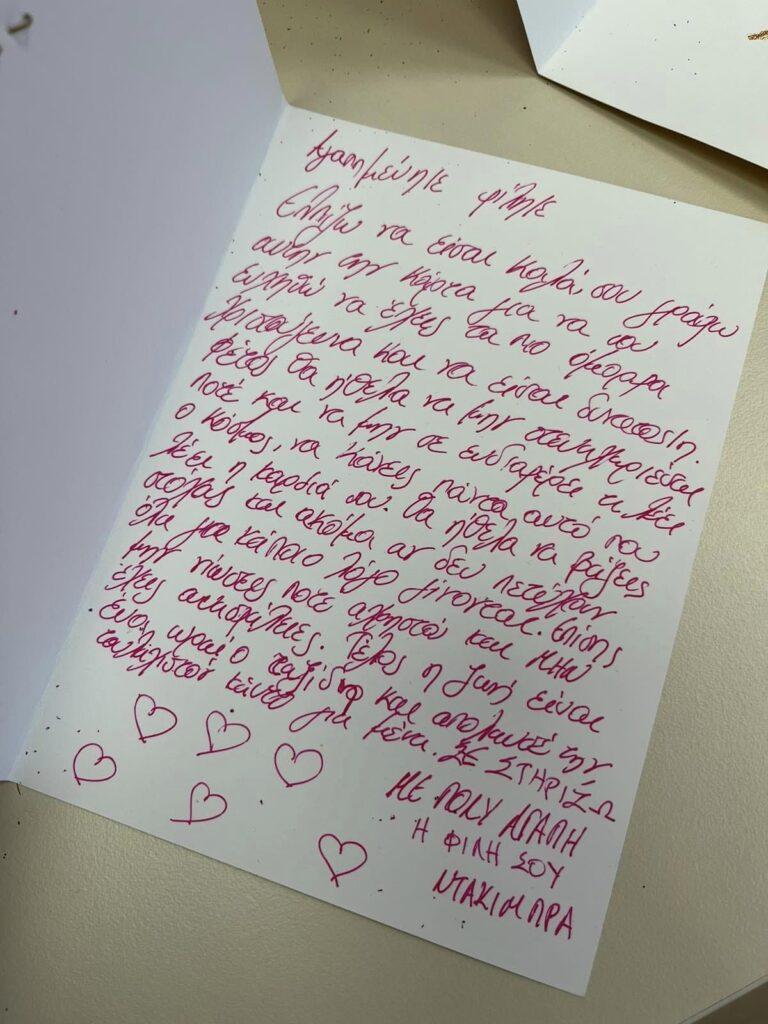 Αγαπημένη/ε φίλη/ε
Ελπίζω να είσαι καλά, σου γράφω
αυτην την κάρτα για να σου
ευχηθώ να έχεις τα πιο όμορφα
Χριστούγεννα και να είσαι δυνατός/η.
Φέτος θα ήθελα να μην στεναχωριέσαι
ποτέ και να μην σε ενδιαφέρει τι λέει
ο κόσμος, να κάνεις πάντα αυτό που
λέει η καρδιά σου. Θα ήθελα να βάζεις
στόχους και ακόμα αν δεν πετύχουν
όλα για κάποιο λόγο γίνονται. Επίσης
μην νιώσεις ποτέ αχρηστος και μην
έχεις ανασφάλειες. Τέλος η ζωή είναι
ένα ωραίο ταξίδι και απόλαυσέ την
τουλάχιστον κάντο για μένα. ΣΕ ΣΤΗΡΙΖΩ
ΜΕ ΠΟΛΥ ΑΓΑΠΗ
Η ΦΙΛΗ ΣΟΥ
ΝΤΑΚΙΜΠΡΑ